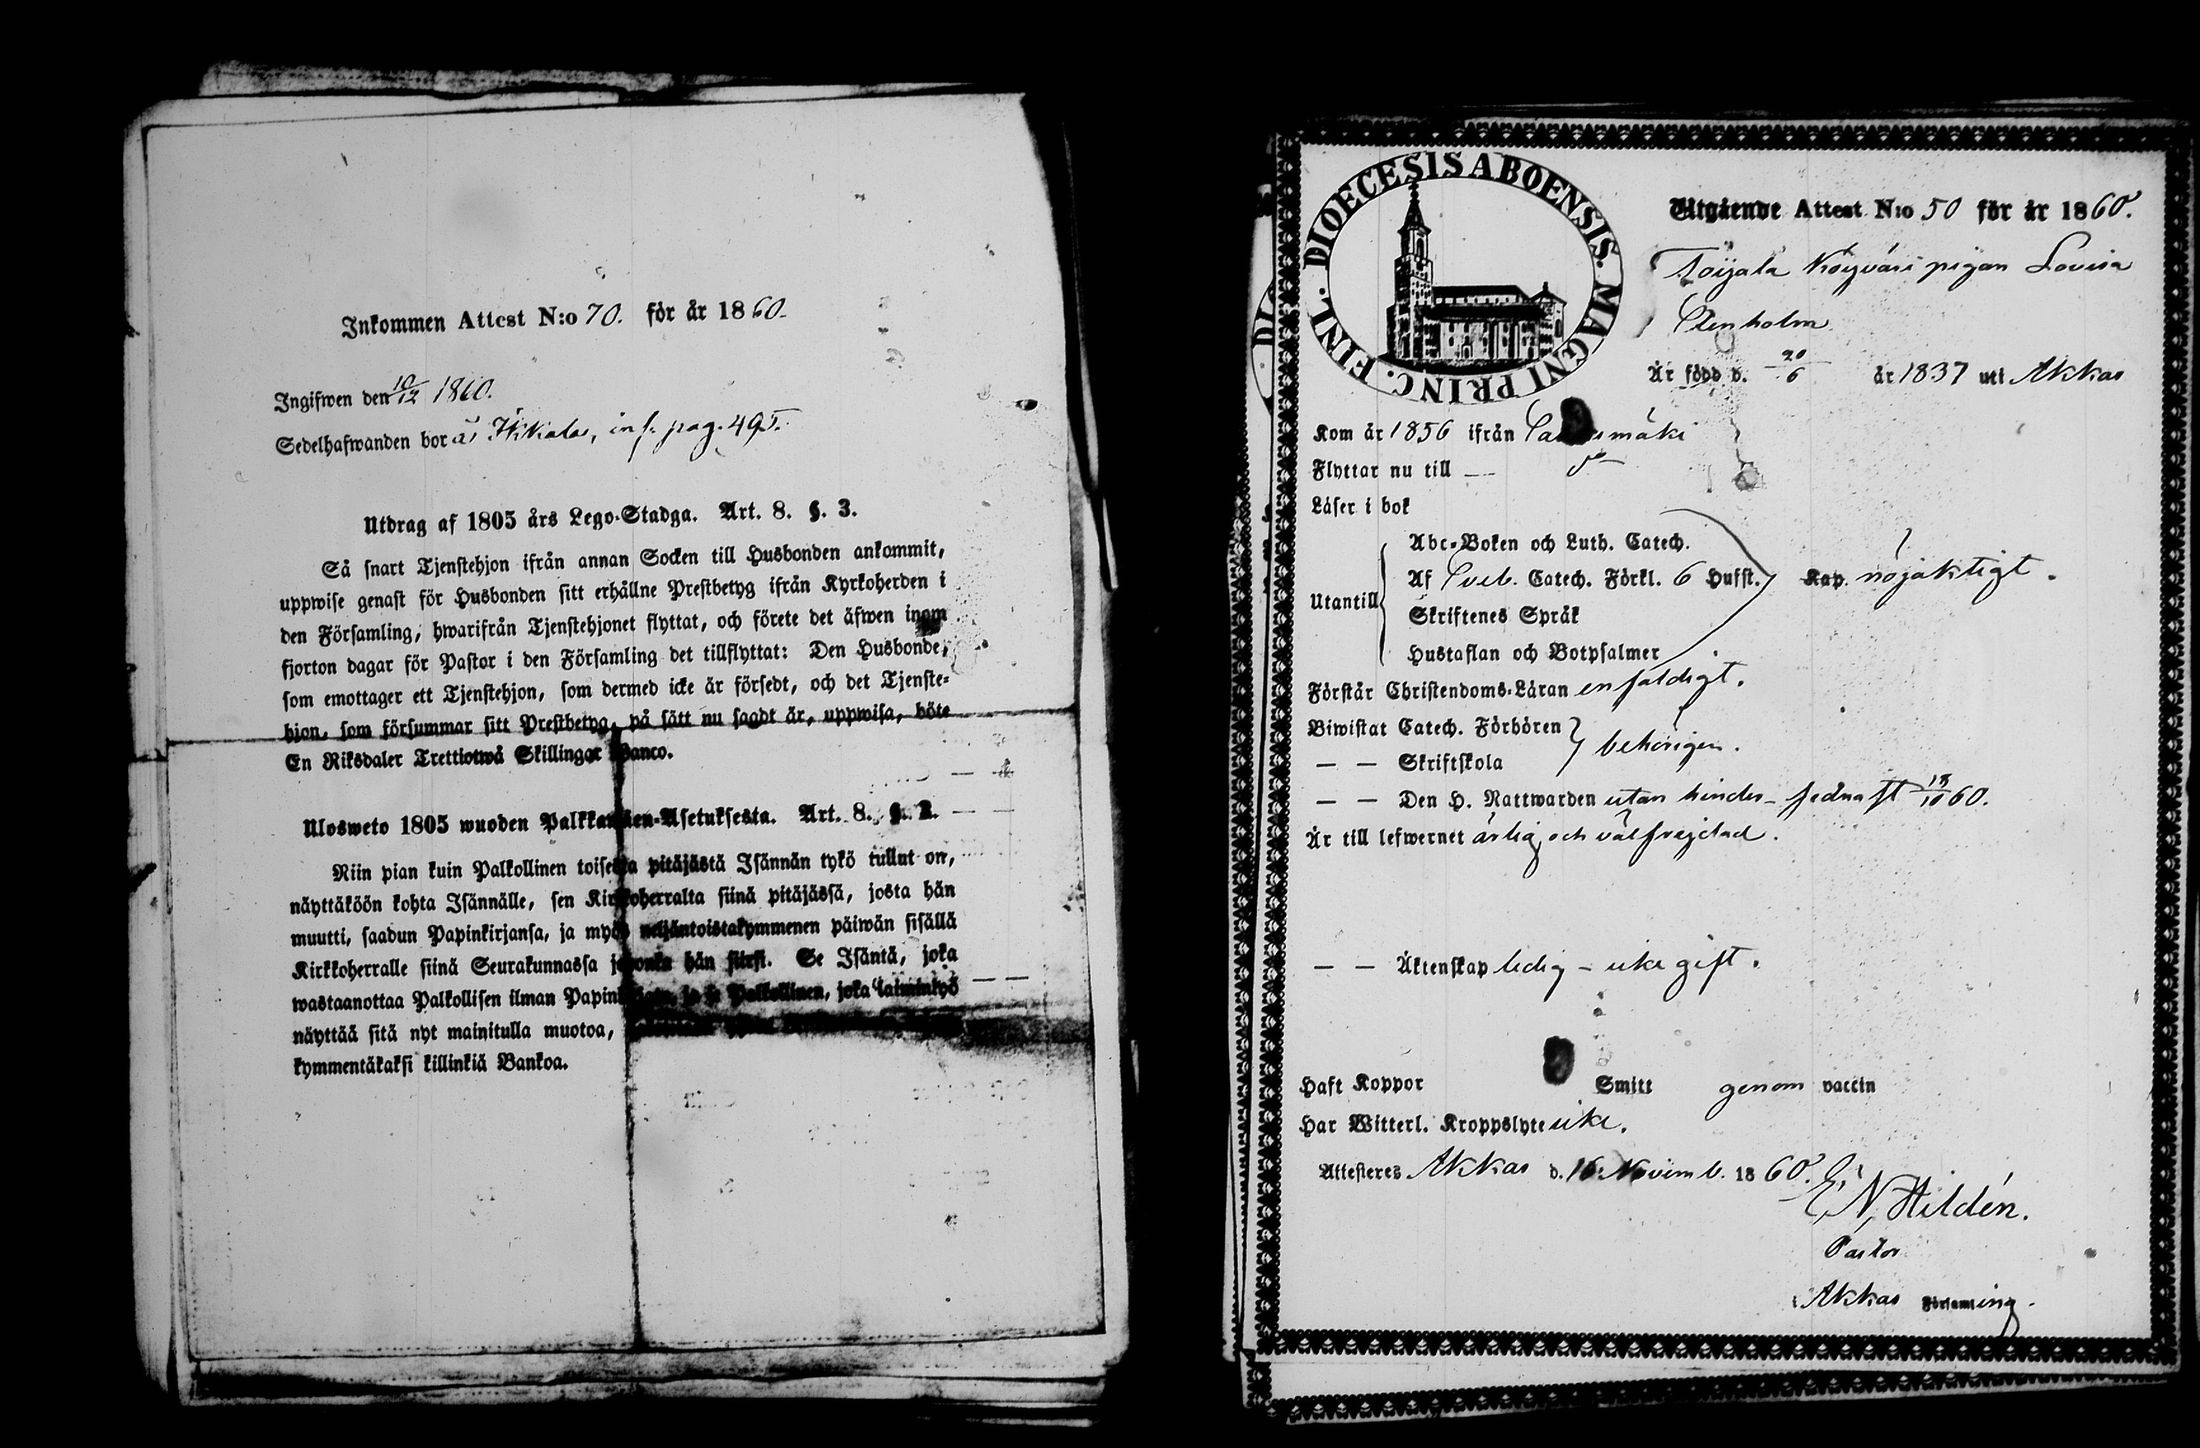 Inkommen Attest N:o 70. för år 1860.
Ingifwen den 10/12 1860.
Sedelhafwanden bor å Ikkala, inf. pag. 495.
Utdrag af 1805 års Lego-Stadga. Art. 8. §. 3.
Så snart Tjenstehjon ifrån annan Socken till Husbonden ankommit,
uppwise genast för Husbonden sitt erhållne Prestbetyg ifrån Kyrkoherden i
den Församling, hwarifrån Tjenstehjonet flyttat, och förete det äfwen inom
fjorton dagar för Pastor i den Församling det tillflyttat: Den Husbonde,
som emottager ett Tjenstehjon, som dermed icke är försedt, och det Tjenste-
hjon, som försummar sitt Prestbetyg, på sätt nu sagdt är, uppwisa, böte
En Riksdaler Trettiotwå Skillingar Banco.
Ulosweto 1805 wuoden Palkkawäen-Asetuksesta. Art. 8. §. 3.
Niin pian kuin Palkollinen toisesta pitäjästä Isännän tykö tullut on,
näyttäköön kohta Isännälle, sen Kirkkoherralta siinä pitäjässä, josta hän
muutti, saadun Papinkirjansa, ja myös neljäntoistakymmenen päiwän sisällä
Kirkkoherralle siinä Seurakunnassa johonka hän siirsi. Se Isäntä, joka
wastaanottaa Palkollisen ilman Papinkirjata, ja se Palkollinen, joka laiminlyö
näyttää sitä nyt mainitulla muotoa,
kymmentäkaksi killinkiä Bankoa.
DIOECESIS ABOENSIS. MAGNI PRINC. FINL.
Utgående Attest N:o 50 för år 1860.
Toijala Köyväri pigan Lovisa
Stenholm
Är född d. 20/6 år 1837 uti Akkas
Kom år 1856 ifrån mäki
Flyttar nu till — do
Läser i bok
Abc-Boken och Luth. Catech.
Af Sveb. Catech. Förkl. 6 Hufst. Kap. nöjaktigt.
Utantill
Skriftenes Språk
Hustaflan och Botpsalmer
Förstår Christendoms-Läran enfaldigt.
Biwistat Catech. Förhören
behörigen.
— — Skriftskola
— — Den H. Nattwarden utan hinder – sednast 18/10 60.
Är till lefwernet ärlig och välfrejdad.
— — Äktenskap ledig – icke gift.
Haft Koppor Smitt genom vaccin
Har Witterl. Kroppslyte icke.
Attesteres Akkas d. 16 Novemb. 1860.
E. N. Hildén.
Pastor
i Akkas Församling.